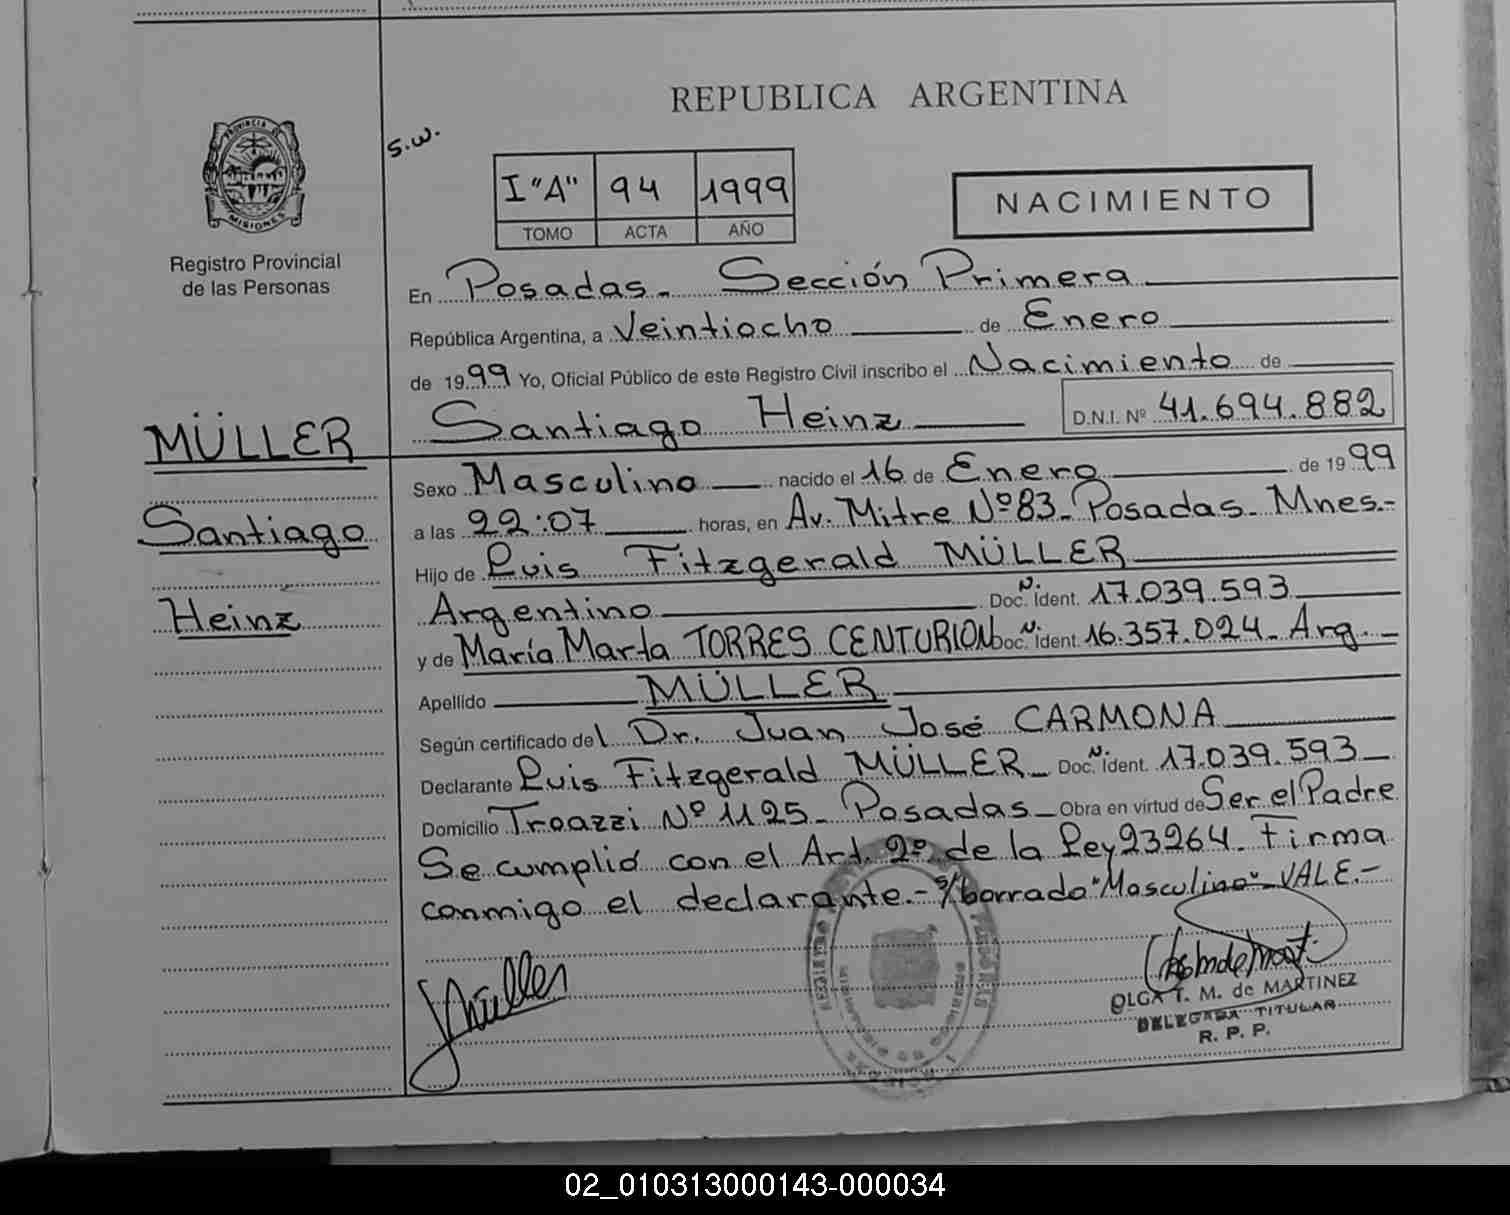 REPUBLICA ARGENTINA
s.w.
PROVINCIA DE
MISIONES
Registro Provincial
de las Personas
I "A" 94 1999
TOMO ACTA AÑO
NACIMIENTO
En Posadas.- Sección Primera
República Argentina, a Veintiocho de Enero
de 1999 Yo, Oficial Público de este Registro Civil inscribo el Nacimiento de
Santiago Heinz D.N.I. Nº 41.694.882
MÜLLER
Santiago
Heinz
Sexo Masculino nacido el 16 de Enero de 1999
a las 22:07 horas, en Av. Mitre Nº 83- Posadas- Mnes.-
Hijo de Luis Fitzgerald MÜLLER
Argentino Doc. N. Ident. 17.039.593
y de María Marta TORRES CENTURION Doc. N. Ident. 16.357.024- Arg.
Apellido MÜLLER
Según certificado del Dr. Juan José CARMONA
Declarante Luis Fitzgerald MÜLLER- Doc. N. Ident. 17.039.593
Domicilio Troazzi Nº 1125- Posadas- Obra en virtud de Ser el Padre
Se cumplió con el Art. 2º de la Ley 23264- Firma
conmigo el declarante.- s/borrado "Masculino"- VALE.-
Müller
OLGA T. M. de MARTINEZ
DELEGADA TITULAR
R. P. P.
02_010313000143-000034